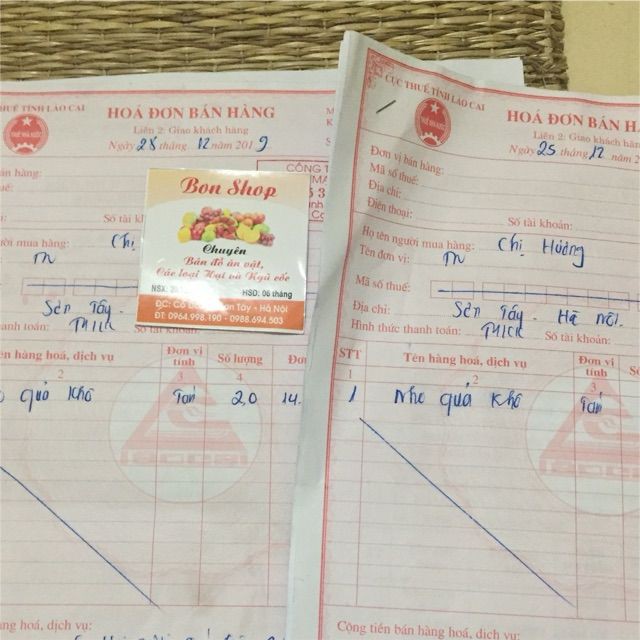 THUẾ TỈNH LÀO CAI
HOÁ ĐƠN BÁN HÀNG
Liên 2: Giao khách hàng
Ngày 25 tháng 12 năm 2019
THUẾ NHÀ NƯỚC
CÔNG T
bán hàng:
thuế:
Số tài kh
người mua hàng: Chị
m
Sơn Tây
thanh toán: TM/CK
Tên hàng hoá, dịch vụ
Đơn vị tính
Số lượng
Đơn
2
3
4
quả khô
Tấn
2,0
14.
hàng hoá, dịch vụ:
Bon Shop
Chuyên
Bán đồ ăn vặt,
Các loại Hạt và Ngũ cốc
NSX:
HSD: 06 tháng
Tây - Hà Nội
ĐT: 0964.998.190 - 0988.694.503
CỤC THUẾ TỈNH LÀO CAI
THUẾ NHÀ NƯỚC
HOÁ ĐƠN BÁN H
Liên 2: Giao khách hàn
Ngày 25 tháng 12 năm 2
Đơn vị bán hàng:
Mã số thuế:
Địa chỉ:
Điện thoại:
Số tài khoản:
Họ tên người mua hàng: Chị Hương
Tên đơn vị: m
Mã số thuế:
Địa chỉ: Sơn Tây - Hà Nội.
Hình thức thanh toán: TM/CK
Số tài khoản:
STT
Tên hàng hoá, dịch vụ
Đơn vị tính
Số
1
2
3
1 Nho quả khô Tấn
Cộng tiền bán hàng hoá, dịch vụ: